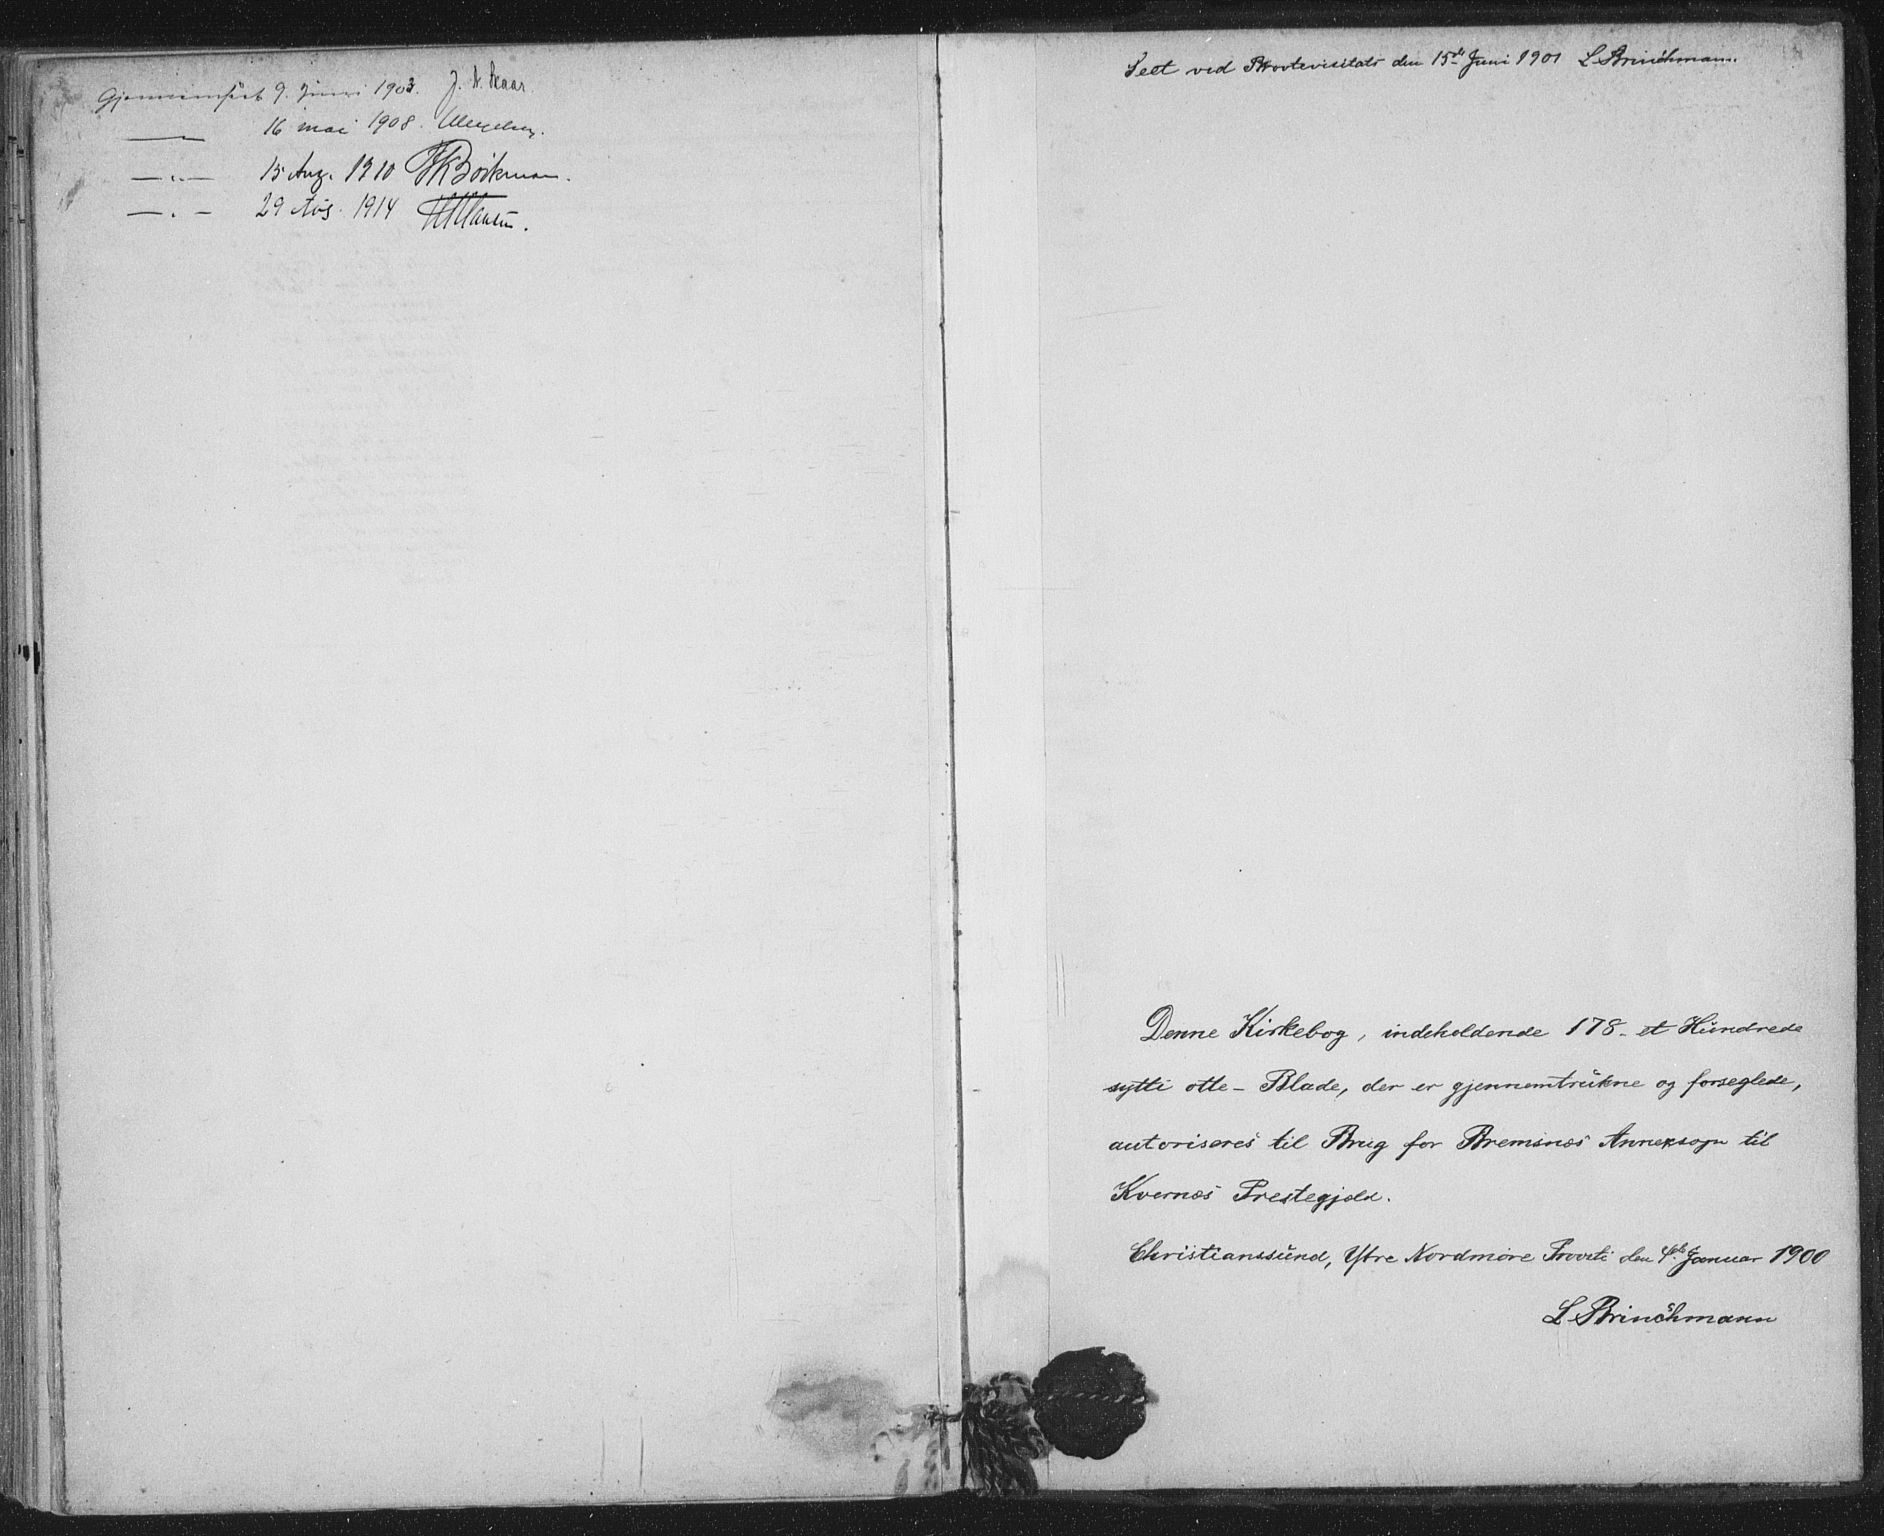 Gjennemseet 9. Juni 1903. J. A. Skaar.
— 16 mai 1908.
— " — 15 Aug. 1910 HK Böckman.
— " — 29 Aug. 1914 Hansen.
Seet ved Provtevisitats den 15de Juni 1901 L Brinchmann.
Denne Kirkebog, indeholdende 178 - et Hundrede
sytti otte - Blade, der er gjennemtrukne og forseglede,
autoriseres til Brug for Bremsnes Annexsogn til
Kvernes Prestegjeld.
Christianssund, Ytre Nordmøre Provsti den 4de Januar 1900
L. Brinchmann